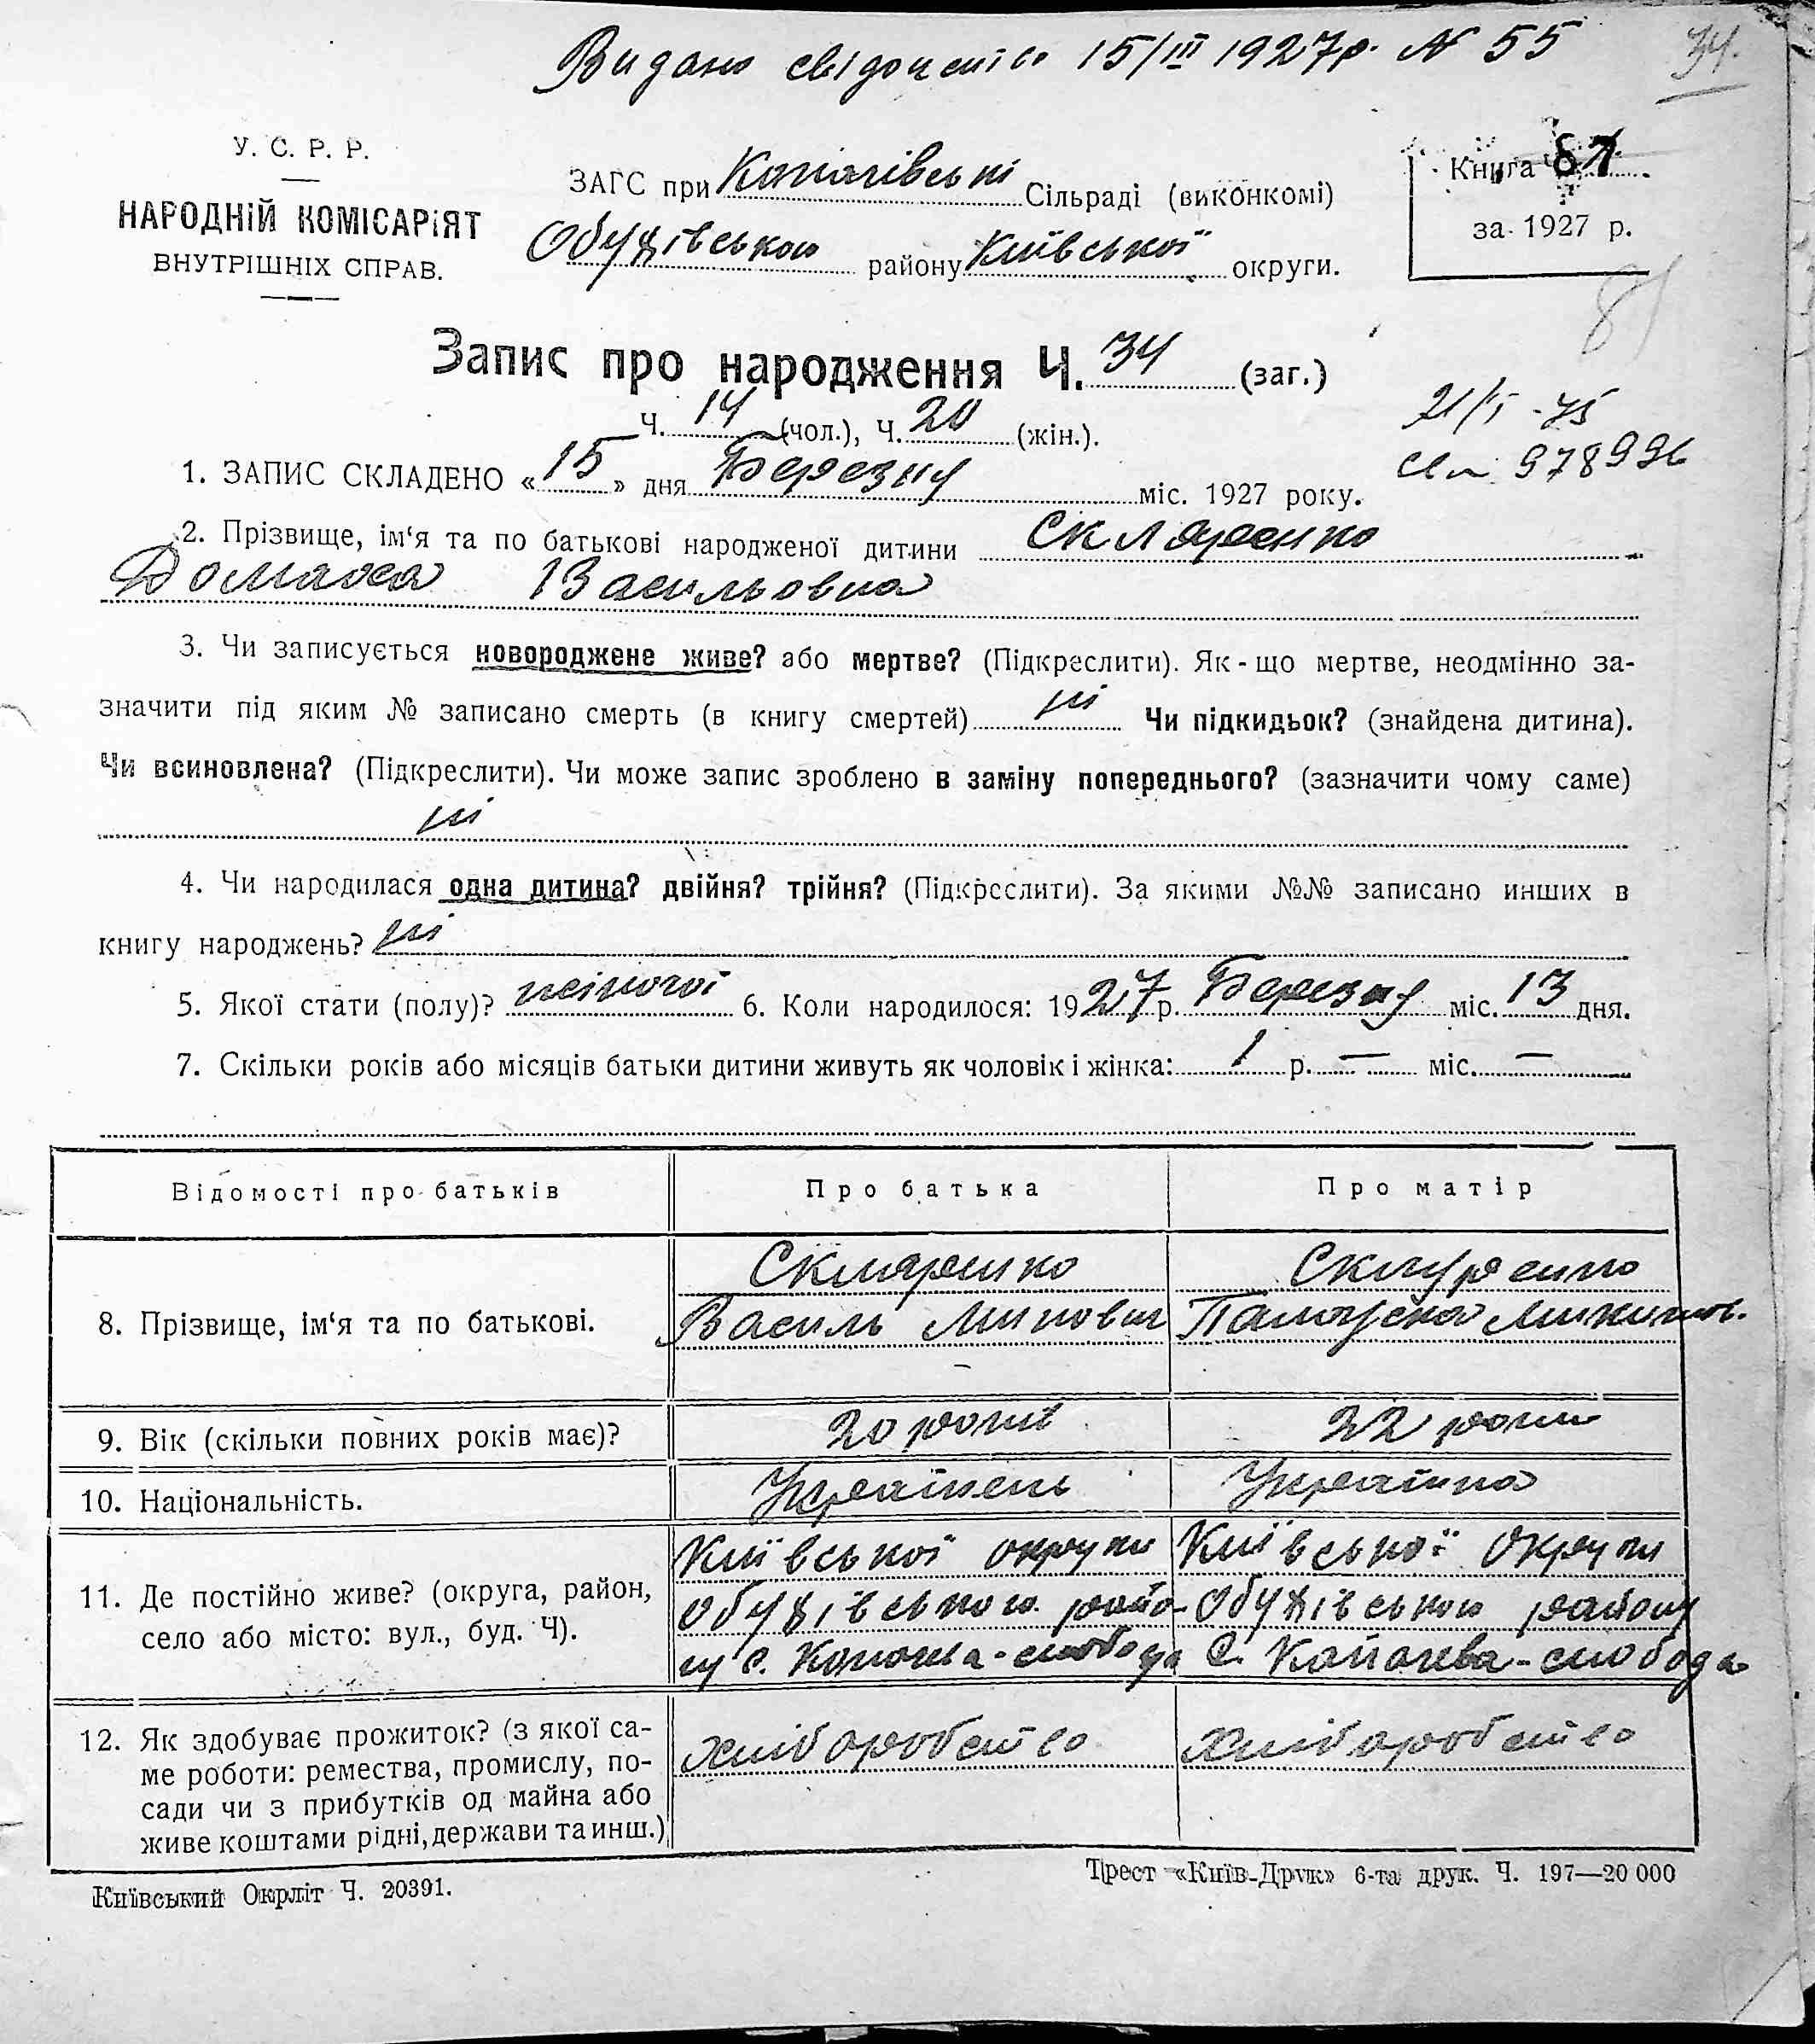 Видано свідоцтво 15/III 1927р. N 55
34.
У. С. Р. Р.
НАРОДНІЙ КОМІСАРІЯТ
ВНУТРІШНІХ СПРАВ.
ЗАГС при Копачівські Сільраді (виконкомі)
Обухівського району Київської округи.
Книга
за 1927 р.
81
Запис про народження Ч. 34 (заг.)
Ч. 14 (чол.), Ч. 20 (жін.).
21/І-75
978996
1. ЗАПИС СКЛАДЕНО «15» дня Березня міс. 1927 року.
2. Прізвище, ім‘я та по батькові народженої дитини Скляренко
Домаха Васильовна
3. Чи записується новороджене живе? або мертве? (Підкреслити). Як-що мертве, неодмінно за-
значити під яким № записано смерть (в книгу смертей) ні Чи підкидьок? (знайдена дитина).
Чи всиновлена? (Підкреслити). Чи може запис зроблено в заміну попереднього? (зазначити чому саме)
ні
4. Чи народилася одна дитина? двійня? трійня? (Підкреслити). За якими №№ записано инших в
книгу народжень? ні
5. Якої стати (полу)? жіночої 6. Коли народилося: 1927р. Березня міс. 13 дня.
7. Скільки років або місяців батьки дитини живуть як чоловік і жінка: 1 р. — міс. —
Відомості про батьків
Про батька
Про матір
8. Прізвище, ім‘я та по батькові.
Скляренко
Василь Минович
Скляренко
Палажка
9. Вік (скільки повних років має)?
20 років
22 роки
10. Національність.
Українець
Українка
11. Де постійно живе? (округа, район,
село або місто: вул., буд. Ч).
Київської округи
Обухівського райо-
ну с. Копачева-слобода
Київської Округи
Обухівського району
С. Копачева-слобода
12. Як здобуває прожиток? (з якої са-
ме роботи: ремества, промислу, по-
сади чи з прибутків од майна або
живе коштами рідні, держави та инш.)
хліборобство
хліборобство
Київський Окрліт Ч. 20391.
Трест «Київ-Друк» 6-та друк. Ч. 197—20 000